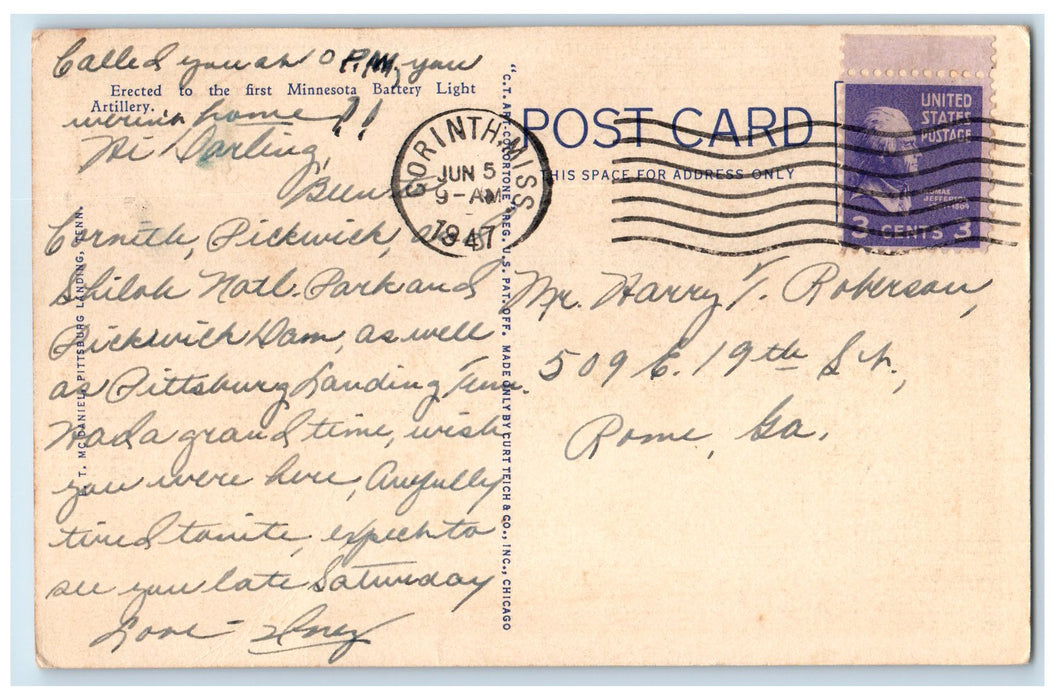 Called you at 10 P.M., you
Erected to the first Minnesota Battery Light
Artillery.
weren't home!!
Hi Darling,
Been
Corinth, Pickwick, and
Shiloh Natl. Park and
Pickwick Dam, as well
as Pittsburg Landing, Tenn.
Had a grand time, wish
you were here, Awfully
tired tonite, expect to
see you late Saturday
Love - Inez
T. MCDANIEL, PITTSBURG LANDING, TENN.
"C.T. ART-COLORTONE" REG. U.S. PAT. OFF. MADE ONLY BY CURT TEICH & CO., INC., CHICAGO
CORINTH, MISS.
JUN 5
9-AM
1947
POST CARD
THIS SPACE FOR ADDRESS ONLY
UNITED
STATES
POSTAGE
THOMAS
JEFFERSON
3 CENTS 3
Mr. Harry T. Roberson,
509 E. 19th St.,
Rome, Ga.